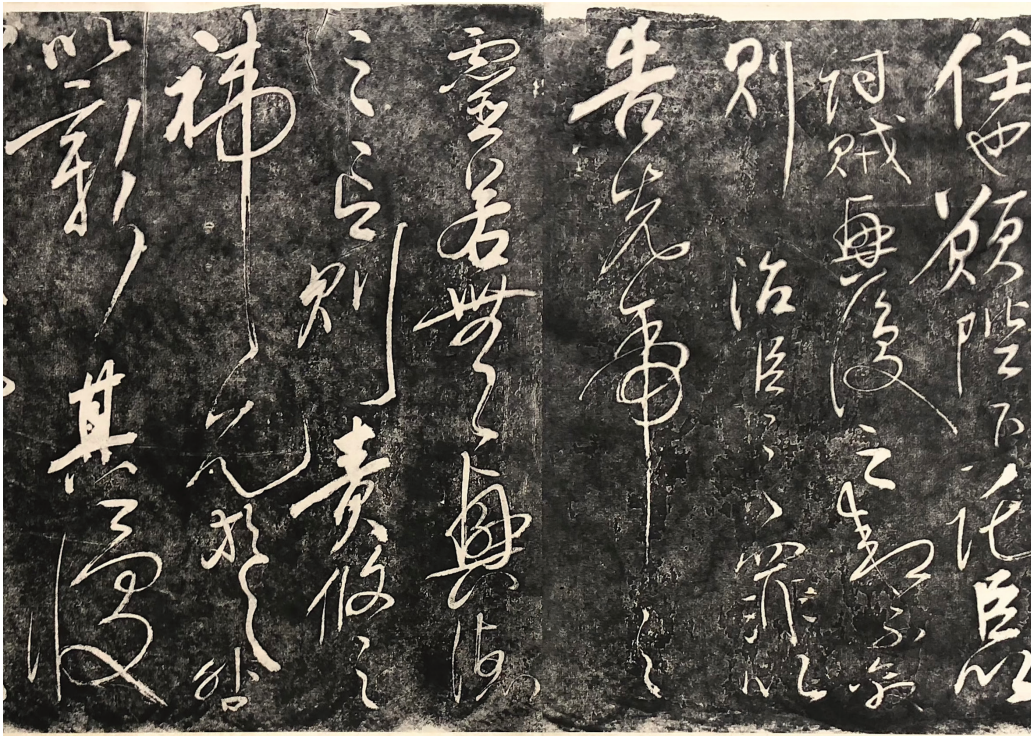 任也願陛下託臣以
討賊興復之效不效
則治臣之罪以
告先帝之
靈若無興德
之言則責攸之
禕允等之咎
以彰其慢